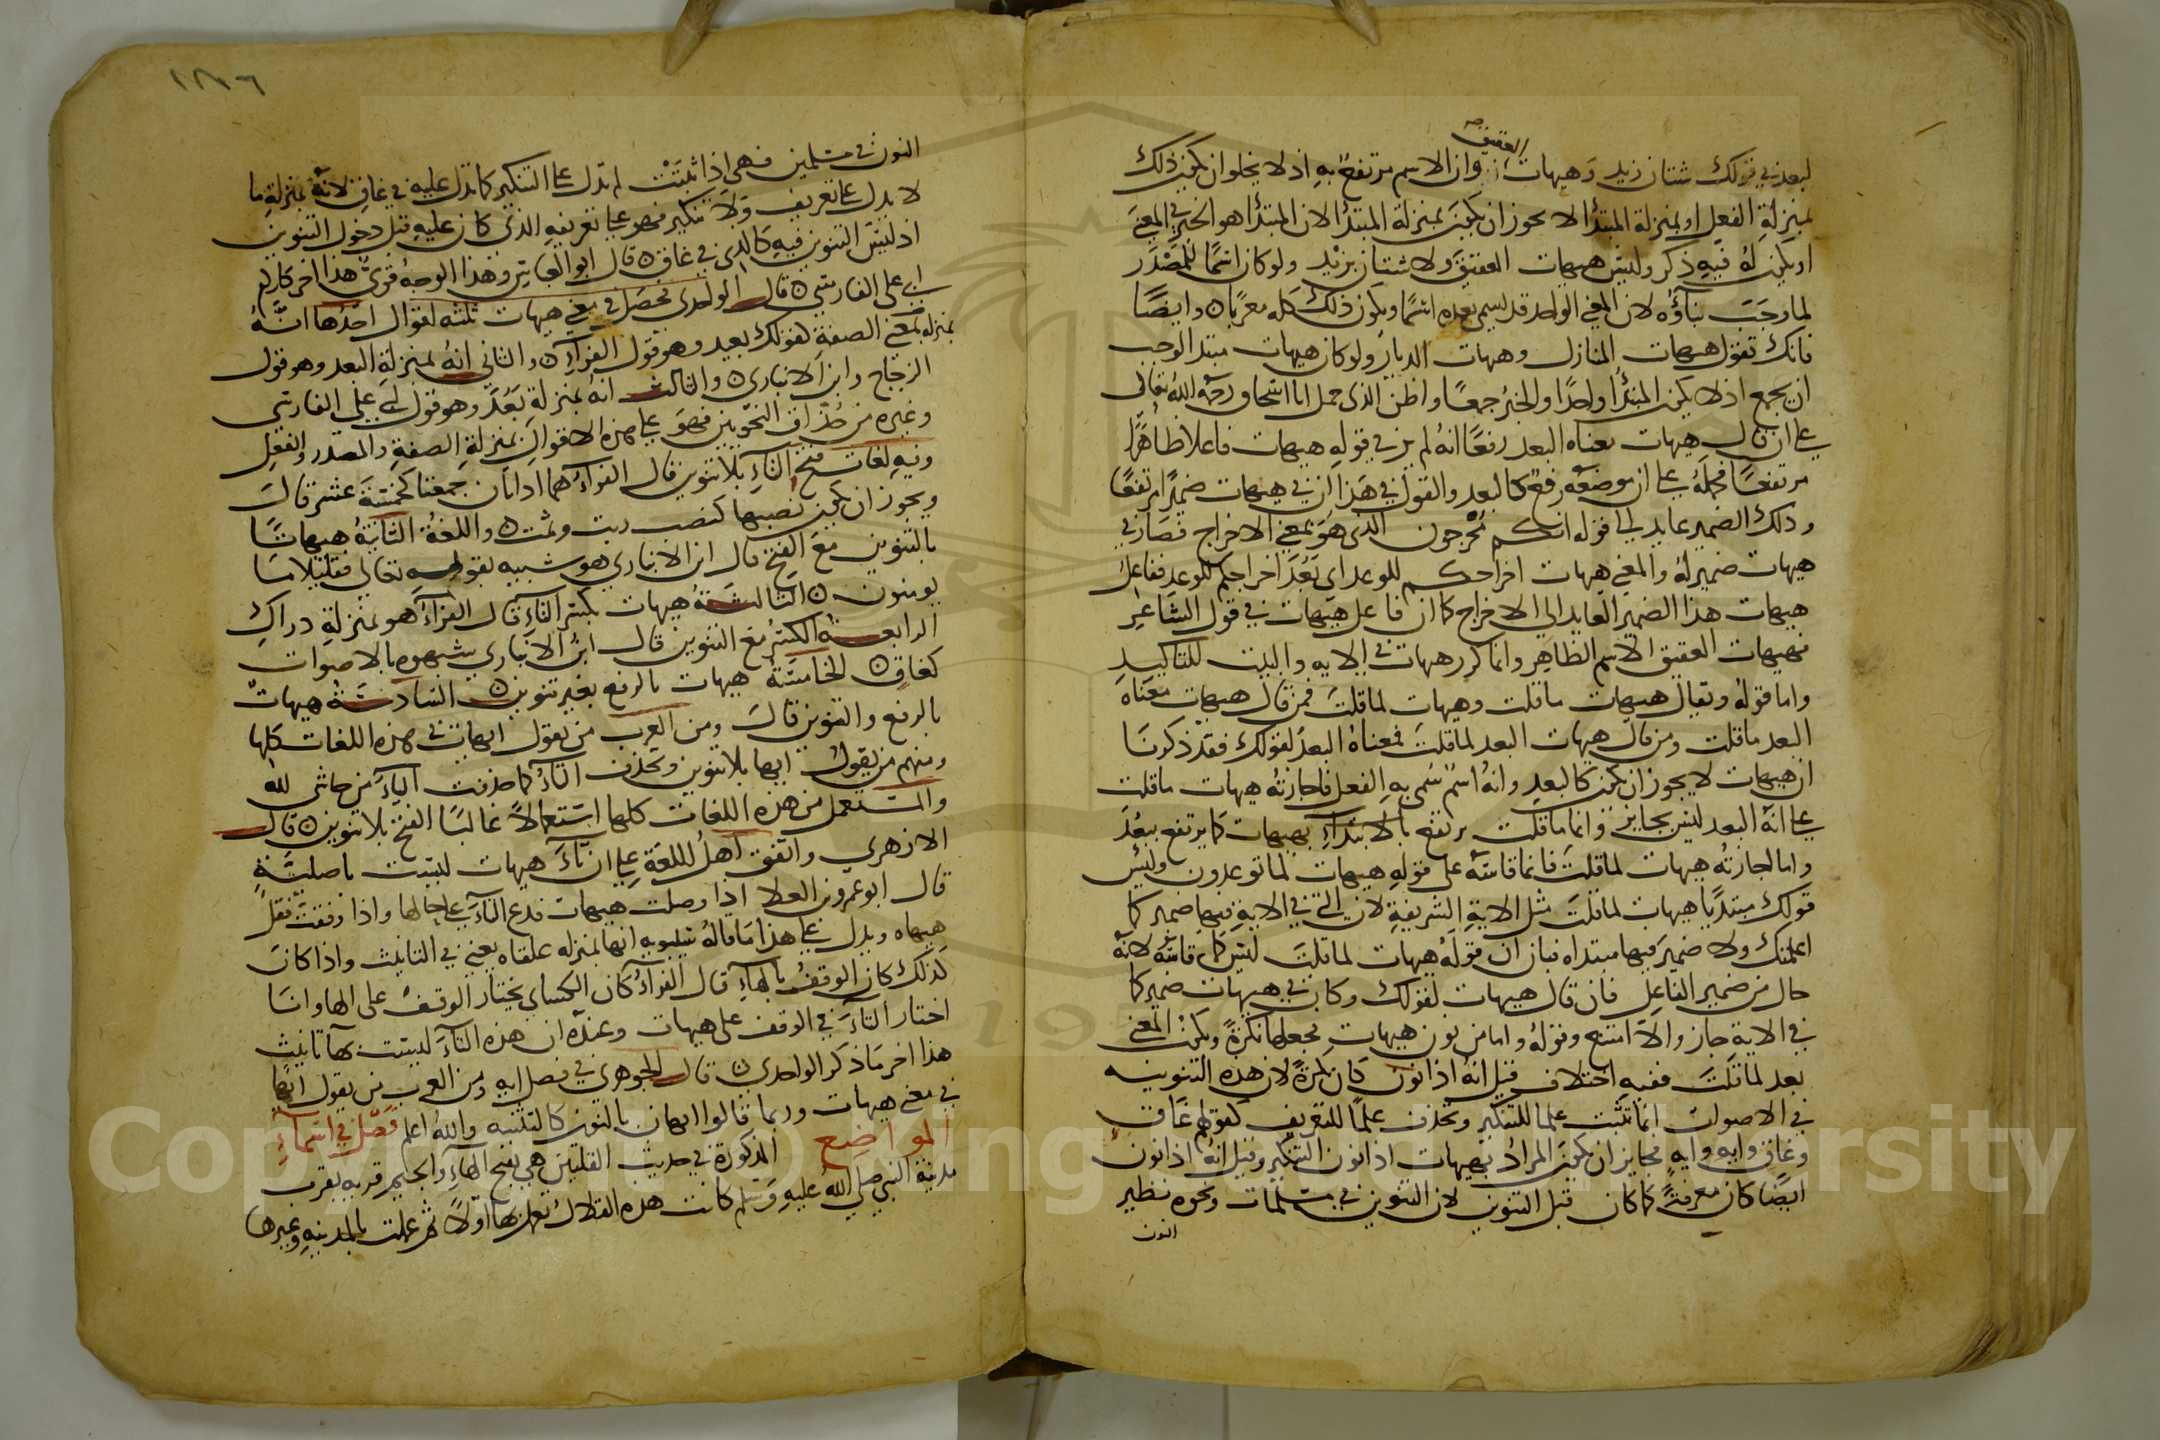 العقيق صح
لبعد في قولك شتان زيد وهيهات وان الاسم مرتفع به اذ لا يخلوا ان يكون ذلك
بمنزلة الفعل او بمنزلة المبتدأ لا يجوز ان يكون بمنزلة المبتدأ لان المبتدأ هو الخبر في المعنى
او يكون له فيه ذكر وليس هيهات العقيق ولا شتان بزيد ولو كان اسما للمصدر
لما وجب بناؤه لان المعنى الواحد قد يسمى بعده اسما ويكون ذلك كله معربا ه وايضا
فانك تقول هيهات المنازل وهيهات الديار ولو كان هيهات مبتدا لوجب
ان يجمع اذ لا يكون المبتدأ واحدا والخبر جمعا واظن الذي حمل ابا اسحاق رحمه الله تعالى
على ان قال هيهات معناه البعد رفعا انه لم ير في قوله هيهات فاعلا ظاهرا
مرتفعا فحمله على ان موضعه رفع كالبعد والقول في هذا ان في هيهات ضميرا مرتفعا
وذلك الضمير عايد الى قوله انكم مخرجون الذي هو بمعنى الاخراج فصار في
هيهات ضمير له والمعنى هيهات اخراجكم للوعد اي بعد اخراجكم للوعد ففاعل
هيهات هذا الضمير العايد الى الاخراج كما ان فاعل هيهات في قول الشاعر
فهيهات العقيق الاسم الظاهر وانما كرر هيهات في الايه والبيت للتاكيد
واما قوله ويقال هيهات ماقلت وهيهات لماقلت فمن قال هيهات معناه
البعد ماقلت ومن قال هيهات البعد لماقلت فمعناه البعد لقولك فقد ذكرنا
ان هيهات لا يجوز ان يكون كالبعد وانه اسم سمي به الفعل فاجازته هيهات ماقلت
على انه البعد ليس بجايز وانما ماقلت يرتفع بالابتداء بهيهات كما يرتفع ببعد
واما اجازته هيهات لماقلت فانما قاسه على قوله هيهات لما توعدون وليس
قولك مبتديا هيهات لماقلت مثل الاية الشريفة لان التي في الاية فيها ضمير كما
اعلمتك ولا ضمير فيها مبتداه فبان ان قوله هيهات لماقلت ليس كما قاسه لانه
خال من ضمير الفاعل فان قال هيهات لقولك وكان في هيهات ضمير كما
في الاية جاز والا امتنع وقوله واما من نون هيهات فجعلها نكرة ويكون المعنى
بعد لماقلت ففيه اختلاف قيل انه اذا نون كان نكرة لان هذه التنوينه
في الاصوات انما تثبت علما للتنكير وتحذف علما للتعريف كقولهم غاق
وغاق وايه وايه فجايز ان يكون المراد بهيهات اذا نون التنكير وقيل انه اذا نون
ايضا كان معرفة كما كان قبل التنوين لان التنوين في مسلمات ونحوه نظير
النون
النون في مسلمين فهي اذا ثبتت لم تدل على التنكير كما تدل عليه في غاق لانه بمنزلة ما
لا يدل على تعريف ولا تنكير فهو على تعريفه الذي كان عليه قبل دخول التنوين
اذ ليس التنوين فيه كالذي في غاق ه قال ابو العباس وهذا الوجه قوي هذا اخر كلام
ابي على الفارسي ه قال الواحدي فحصل في معنى هيهات ثلثه اقوال احدها انه
بمنزلة بمعنى الصفة كقولك بعيد وهو قول الفراء ه والثاني انه بمنزلة البعد وهو قول
الزجاج وابن الانباري ه والثالث انه بمنزلة بعد وهو قول ابي على الفارسي
وغيره من حذاق النحويين فهو على هذه الاقوال بمنزلة الصفة والمصدر والفعل
وفيه لغات فتح التاء بلا تنوين قال الفراء هما اداتان جمعتا كخمسة عشر قال
ويجوز ان يكون نصبها كنصب ربت وثمت ه واللغة الثانية هيهاتا
بالتنوين مع الفتح قال ابن الانباري هو شبيه بقوله تعالى فقليلا ما
يومنون ه الثالثة هيهات بكسر التاء قال الفراء هو بمنزلة دراك
الرابعة الكسر مع التنوين قال ابن الانباري يشبهوه بالاصوات
كغاق ه الخامسة هيهات بالرفع بغير تنوين ه السادسة هيهات
بالرفع والتنوين قال ومن العرب من يقول ايهات في هذه اللغات كلها
ومنهم من يقول ايها بلا تنوين وتحذف التاء كما حذفت الياء من حاشى لله
والمستعمل من هذه اللغات كلها استعمالا غالبا الفتح بلا تنوين ه قال
الازهري واتفق اهل اللغة على ان تاء هيهات ليست باصلية
قال ابو عمرو بن العلا اذا وصلت هيهات فدع التاء على حالها واذا وقفت فقل
هيهاه ويدل على هذا ما قاله سيبويه انها بمنزلة علقاه يعني في التانيث واذا كان
كذلك كان الوقف بالهاء قال الفراء كان الكسائي يختار الوقف على الها وانا
اختار التاء في الوقف على هيهات وعنده ان هذه التاء ليست بهاء تانيث
هذا اخر ما ذكر الواحدي ه قال الجوهري في فصل ايه ومن العرب من يقول ايها
في معنى هيهات وربما قالوا ايهان بالنون كالتثنيه والله اعلم فصل في اسماء
المواضع المذكورة في حديث القلتين هي بفتح الهاء والجيم قريه بقرب
مدينة النبي صلى الله عليه وسلم كانت هذه القلال تعمل بها اولا ثم عملت بالمدينه وغيرها